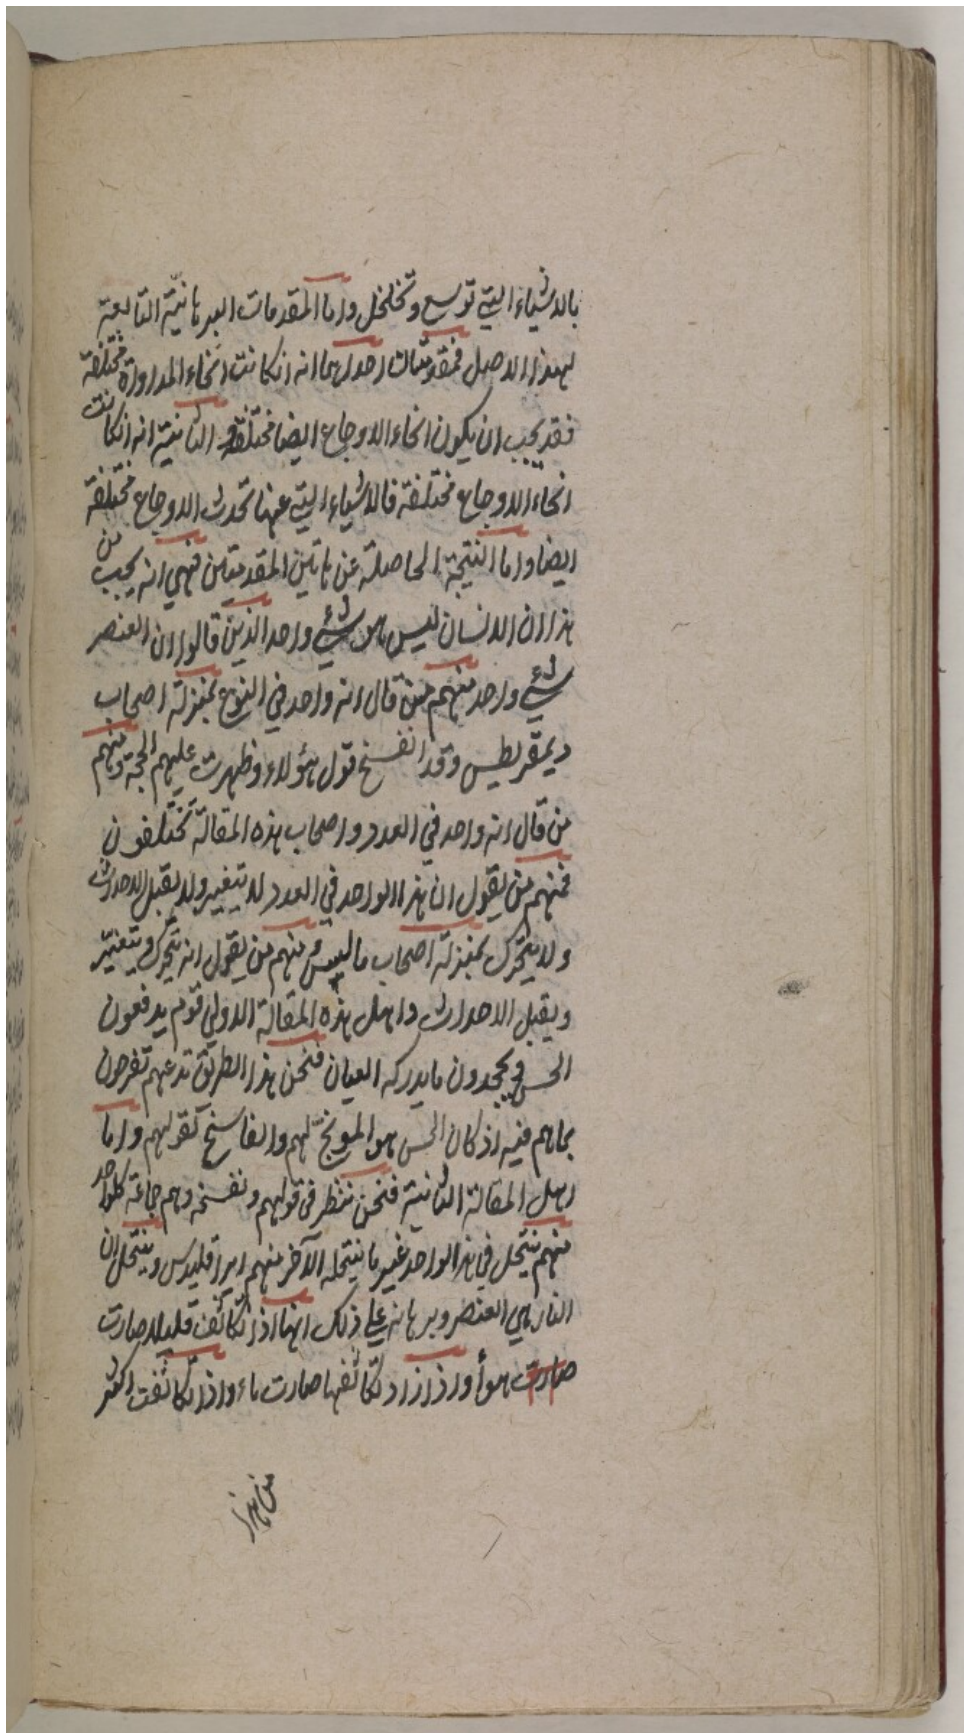 بالاشياء التي توسع وتخلخل واما المقدمات البرهانية التابعة
لهذا الاصل فمقدمتان احداهما انه ان كانت انحاء المداواة مختلفة
فقد يجب ان يكون انحاء الاوجاع ايضا مختلفة و الثانية انه ان كانت
انحاء الاوجاع مختلفة فالاشياء التي عنها تحدث الاوجاع مختلفة
ايضا واما النتيجة الحاصلة عن هاتين المقدمتين فهي انه يجب من
هذا ان الانسان ليس هو شيء واحد الذين قالوا ان العنصر
شيء واحد منهم من قال انه واحد في النوع بمنزلة اصحاب
ديمقريطس وقد انفسخ قول هؤلاء وظهرت عليهم الحجة ومنهم
من قال انه واحد في العدد واصحاب هذه المقالة تختلفون
فمنهم من يقول ان هذا الواحد في العدد لا يتغير ولا يقبل الاحداث
ولا يتحرك بمنزلة اصحاب ماليسس و منهم من يقول انه يتحرك ويتغير
ويقبل الاحداث واهل هذه المقالة الاولى قوم يدفعون
الحس ويجحدون ما يدركه العيان فنحن بهذا الطريق ندعهم تفرحون
بما هم فيه اذ كان الحس هو الموبخ لهم والفاسخ لقولهم واما
اهل المقالة الثانية فنحن ننظر في قولهم ونفسخه وهم جماعة كل واحد
منهم ينتحل في هذا الواحد غير ما ينتحله الآخر منهم ايراقليدس وينتحل ان
النار هي العنصر وبرهانه على ذلك انها اذا تكاثفت قليلا صارت
صارت هوأ واذا زاد تكاثفها صارت ماء واذا تكاثفت اكثر
من هذا